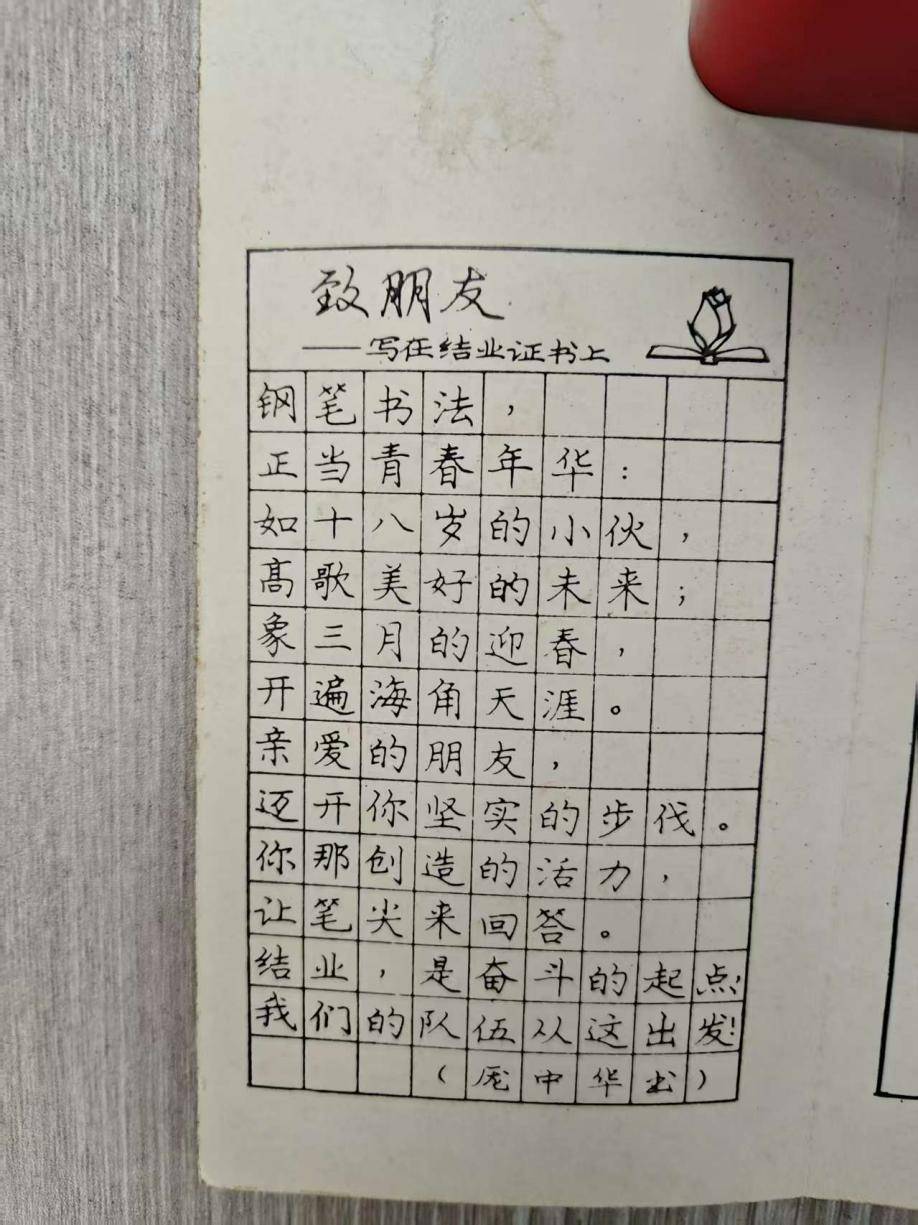 致朋友
——写在结业证书上
钢笔书法，
正当青春年华：
如十八岁的小伙，
高歌美好的未来；
象三月的迎春，
开遍海角天涯。
亲爱的朋友，
迈开你坚实的步伐。
你那创造的活力，
让笔尖来回答。
结业，是奋斗的起点！
我们的队伍从这出发！
（庞中华书）